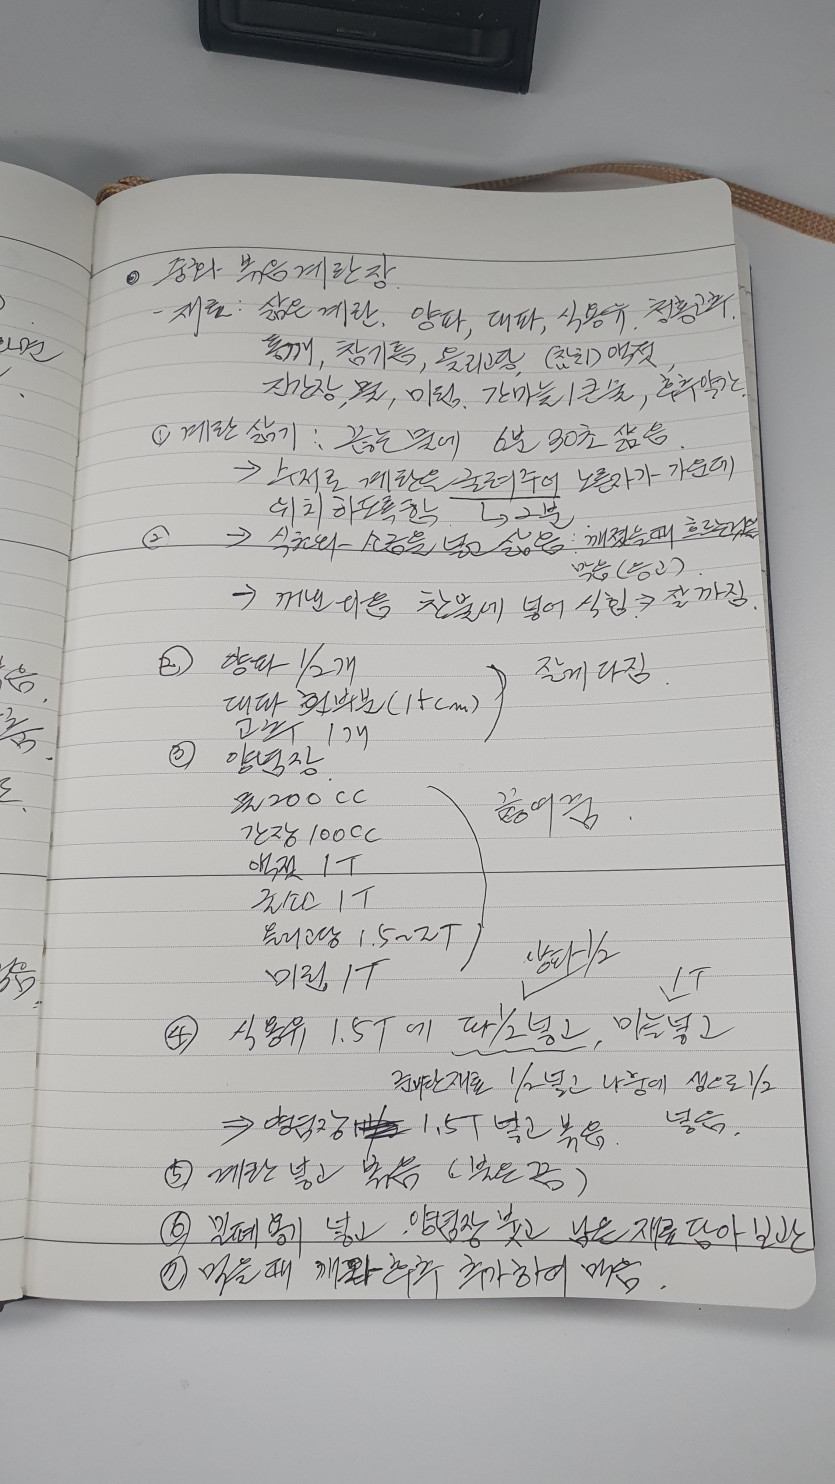 중화 볶음계란장.
- 재료: 삶은 계란. 양파, 대파, 식용유, 청홍고추.
통깨, 참기름, 올리고당, (참치)액젓,
진간장, 물, 미림. 간마늘 1큰술, 후추약간.
① 계란 삶기: 끓는 물에 6분 30초 삶음.
→ 수저로 계란을 굴려주어 노른자가 가운데
위치하도록함. ↳ 2분
② → 식초와 소금을 넣고 삶음: 깨졌을때 흐르는것을
막음(응고).
→ 꺼낸 다음 찬물에 넣어 식힘. → 잘 까짐.
②. 양파 1/2개
대파 흰부분(15cm)
고추 1개
잘게 다짐.
③ 양념장.
물 200cc
간장 100cc
액젓 1T
설탕 1T
올리고당 1.5~2T
미림 1T
양파 1/2
1T
④ 식용유 1.5T에 파1/2넣고, 마늘넣고
준비한재료 1/2넣고 나중에 생으로 1/2
넣음.
⇒ 양념장 1.5T 넣고 볶음.
⑤ 계란 넣고 볶음
⑥ 밀폐용기 넣고 양념장 붓고 남은 재료 담아 보관
⑦ 먹을때 깨와 후추 추가하여 먹음.